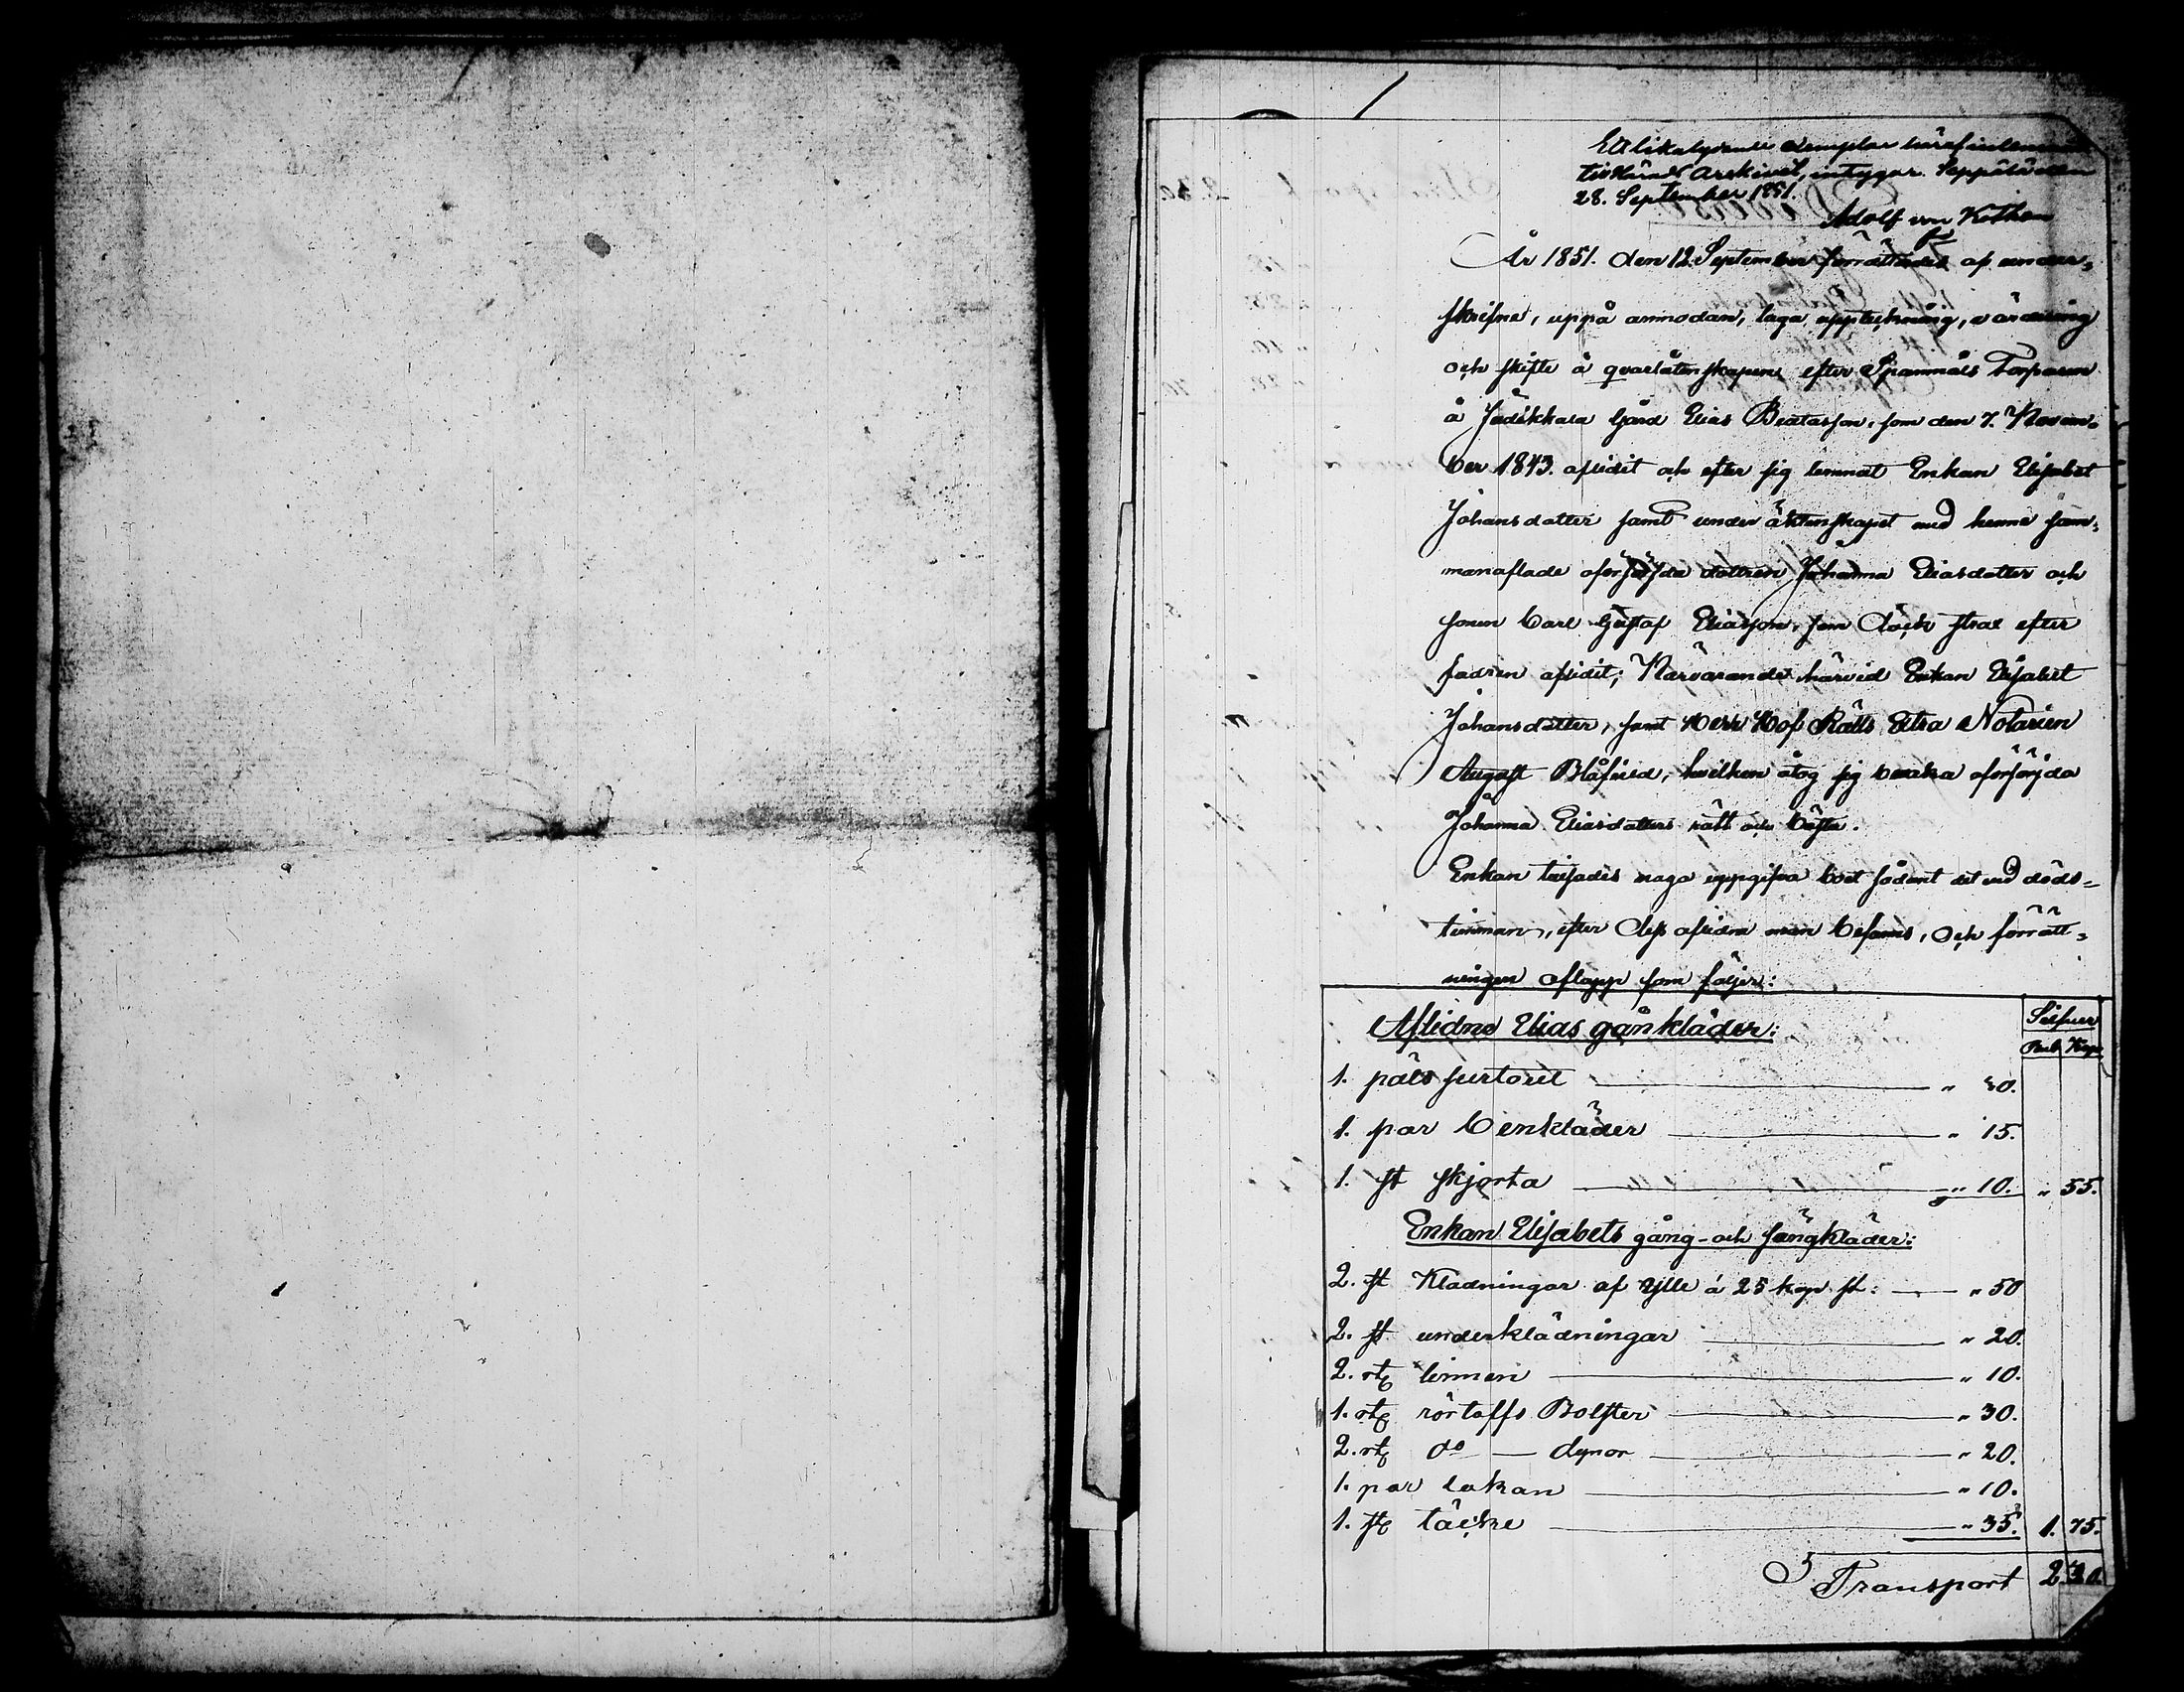 Ett likalydande exemplar häraf inlemnadt
till Härads Arkivet, intygar. Seppälä den
28. September 1851.
Adolf von Kothen
År 1851. den 12. September förrättades af under-
skrifne, uppå anmodan, laga uppteckning, värdering
och skifte å qvarlåtenskapen efter Spannmåls Torparen
å Jutikkala Gård Elias Beatasson, som den 7. Novem-
ber 1843. aflidit och efter sig lemnat Enkan Elisabet
Johansdotter samt under äktenskapet med henne sam-
manaflade oförsörjda dottren Johanna Eliasdotter och
sonen Carl Gustaf Eliasson, som dock strax efter
fadren aflidit; Närvarande härvid Enkan Elisabet
Johansdotter, samt Herr Hof Rätts Extra Notarien
August Blåfield, hvilken åtog sig bevaka oförsörjda
Johanna Eliasdotters rätt och bästa.
Enkan tillsades noga uppgifva boet sådant det vid döds-
timman, efter dess aflidne man befanns, och förrätt-
ningen aflopp som följer:
Silfver
Rub. Kop.
Aflidne Elias gånkläder:
1. päls surtout " 30.
1. par benkläder " 15.
1. st skjorta " 10. " 55.
Enkan Elisabets gång- och sängkläder:
2. st Kladningar af ylle á 25 kop st: " 50
2. st underklädningar " 20.
2. st linnen " 10.
1. st Bolster " 30.
2. st do dynor " 20.
1. par lakan " 10.
1. st täcke " 35. 1. 75.
Transport 2 30.